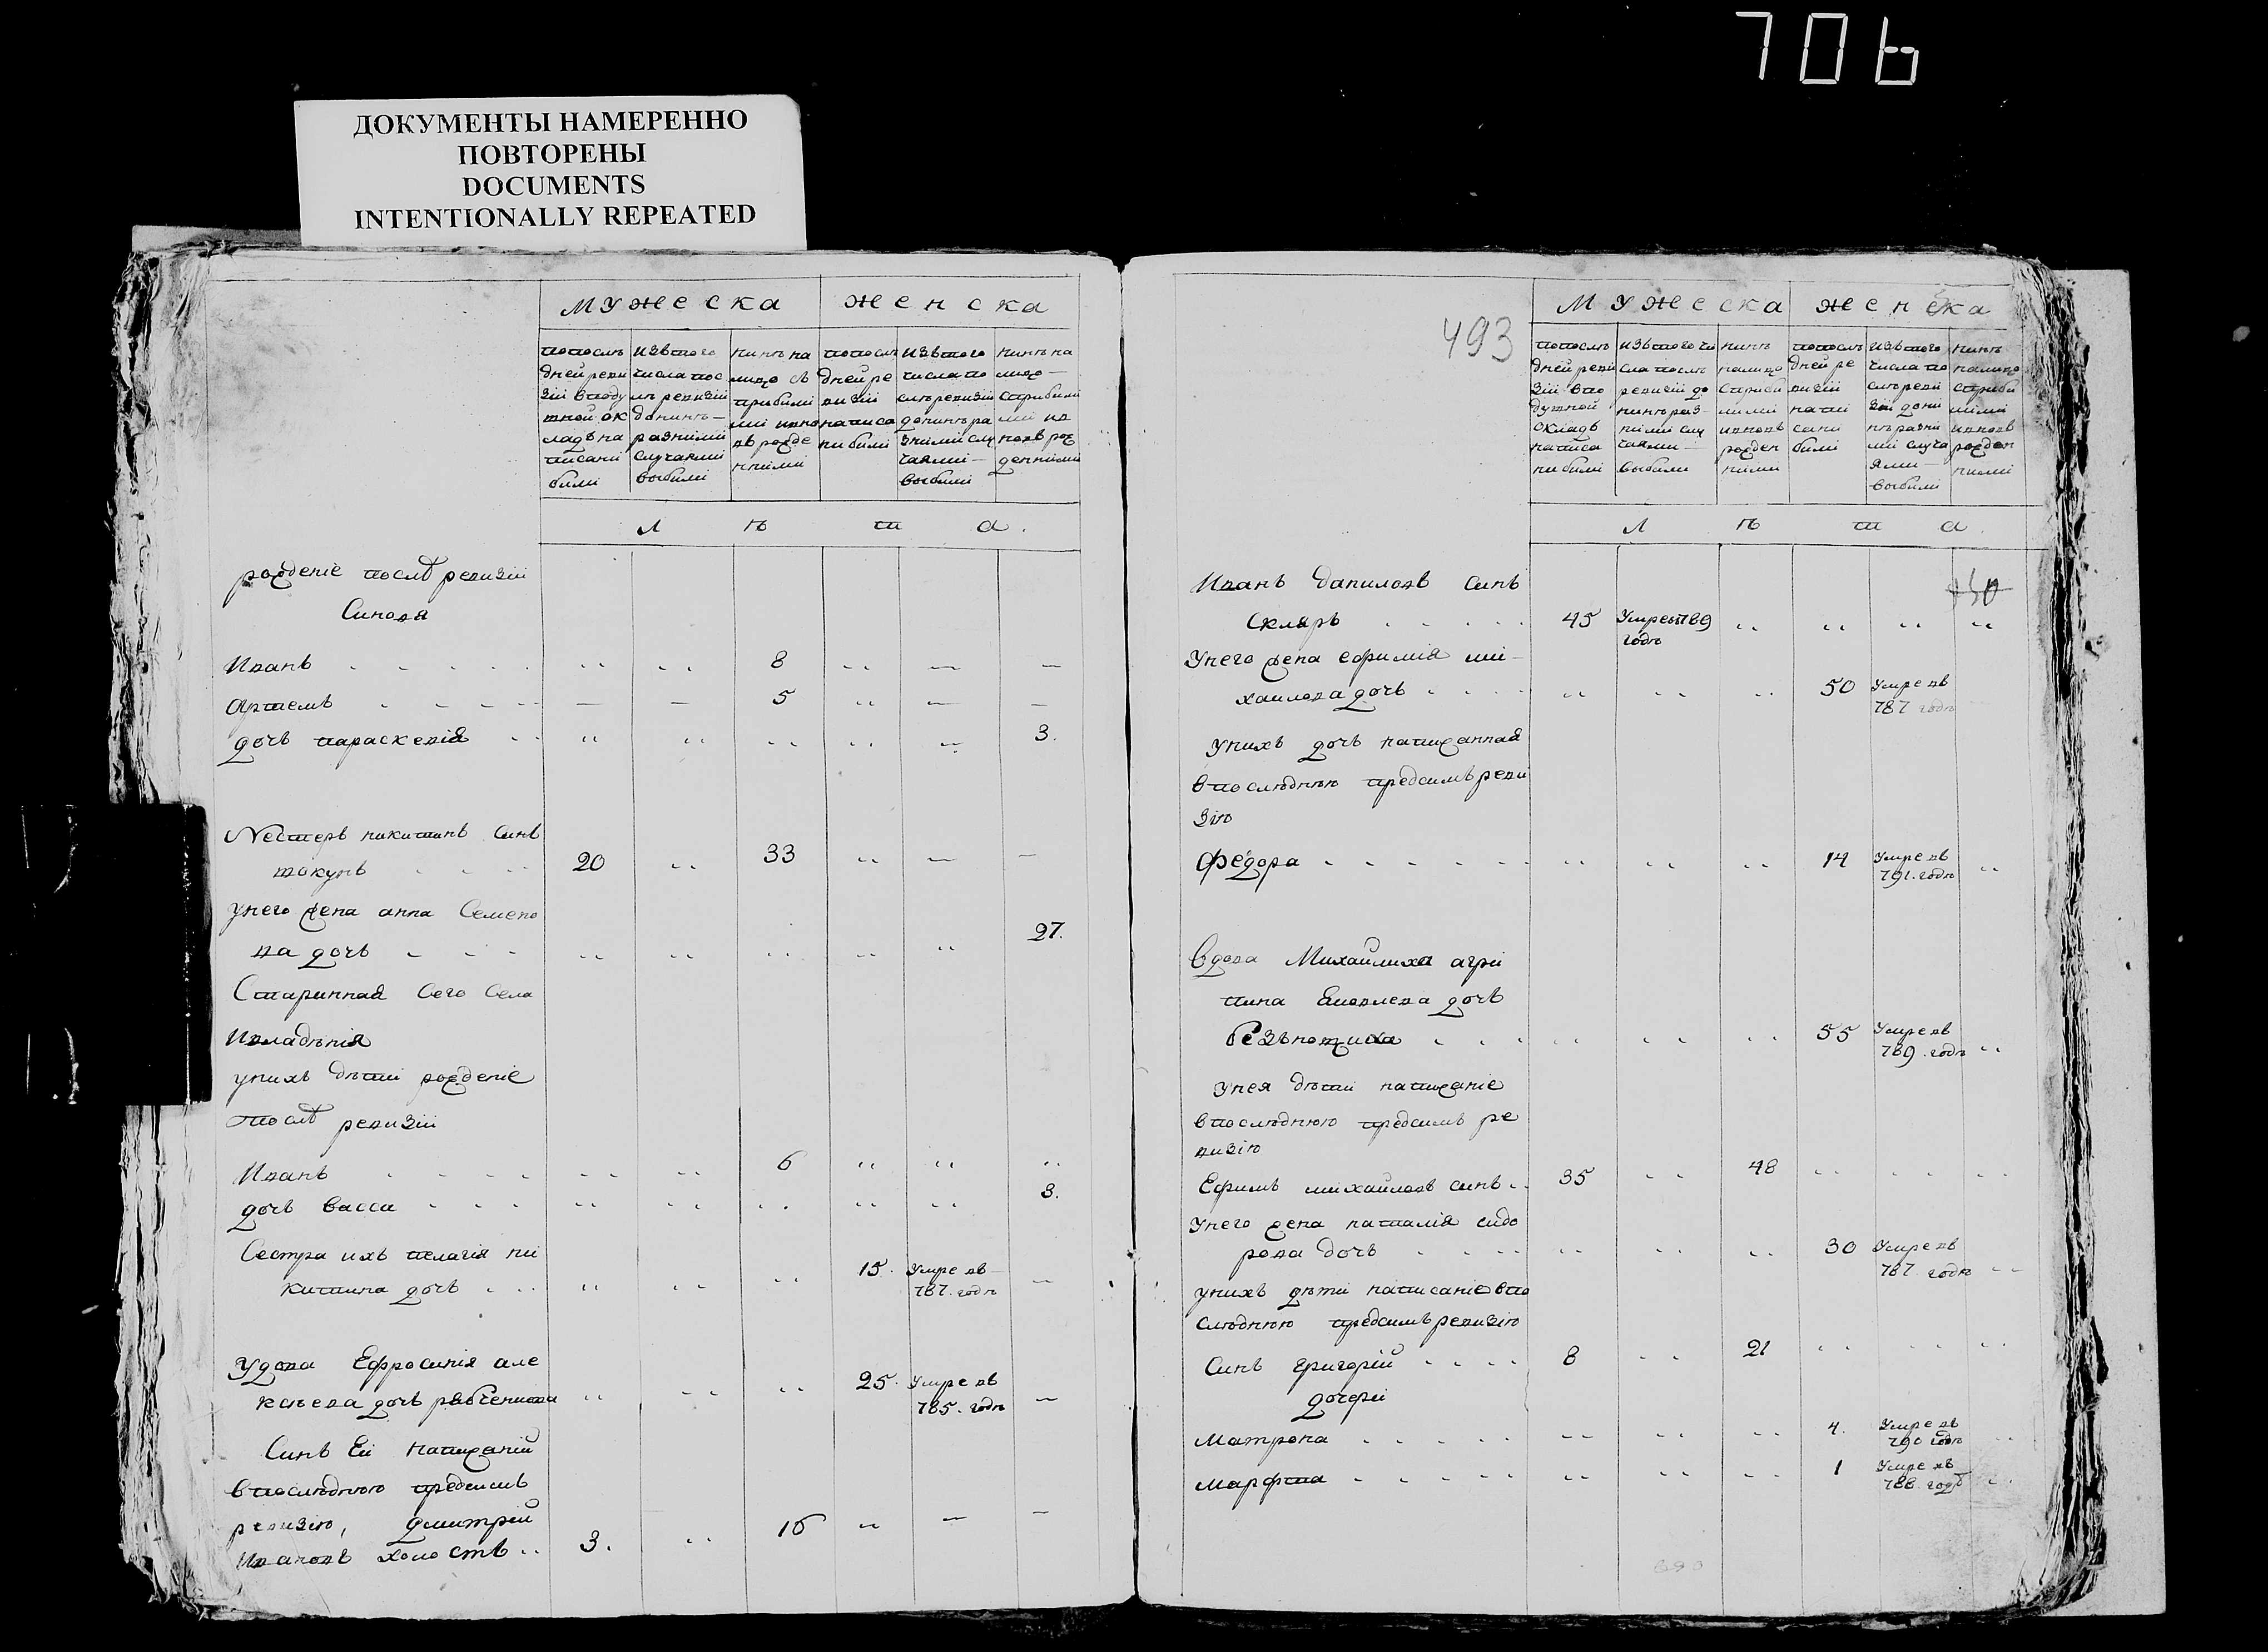 706
ДОКУМЕНТЫ НАМЕРЕННО
ПОВТОРЕНЫ
DOCUMENTS
INTENTIONALLY REPEATED
мужеска женска
попослѣ
дней реви
зіи вподу
шной ок
ладъ на
писани
были
изътого
числа пос
лѣ ревизіи
донинѣ
разними
случаями
выбыли
нинѣ на
лицо съ
прибилі
ми иnно
въ рожде
нними
попослѣ
дней ре
визіи
написа
ни били
изътого
числа по
слѣ ревизіи
донинѣ ра
зними слу
чаями
выбыли
нинѣ на
лицо
сприбили
ми ив
новъ рож
денними
л ѣ т а.
рожденіе послѣ ревизіи
Синовя
Иванъ 8
Артемъ 5
дочъ параскевія 3.
Нестеръ никитинъ синъ
ткунъ 20 33
унего жена анна Семено
ва дочъ 27.
Старинная Сего Села
Ивладѣнія
унихъ дѣти рожденіе
послѣ ревизіи
Иванъ 6
дочъ васса 3.
Сестра ихъ пелагія ни
китина дочъ 15. Умре въ
787. годѣ
Удова Ефросинія але
ксѣева дочъ 25. Умре въ
785. годѣ
Синъ Ей написаній
впослѣднюю предсимъ
ревизію, дмитрій
Ивановъ холостъ 3. 16
493
Мужеска женска
попослѣ
дней реви
зіи впо
душной
окладъ
написа
ни били
изътого чи
сла послѣ
ревизіи до
нинѣ раз
ними слу
чаями
выбыли
нинѣ
налицо
сприби
лими
ивновъ
рожден
ними
попослѣ
дней ре
визіи
напи
сани
били
изътого
числа по
слѣ реви
зіи дони
нѣ разни
ми случа
ями
выбыли
нинѣ
налицо
сприби
лими
ивновъ
рожден
ними
л ѣ т а.
Иванъ даниловъ синъ
Скляръ 45 Умре въ 789
годѣ
Унего жена ефимія ми
хаилова дочъ 50 Умре въ
787 годѣ
унихъ дочъ написанная
впослѣднюю предсимъ реви
зію
Федора 14 Умре въ
791. годѣ
Вдова Михайлиха агри
пина Яковлева дочъ
55 Умре въ
789. годѣ
унея дѣти написаніе
впослѣднюю предсимъ ре
визію
Ефимъ михайловъ синъ 35 48
Унего жена наталія сидо
рова дочъ 30 Умре въ
787. годѣ
унихъ дѣти написаніе впо
слѣднюю предсимъ ревизію
Синъ григорій 8 21
дочери
Матрона 4. Умре въ
790 годѣ
Марфа 1 Умре въ
788. годѣ